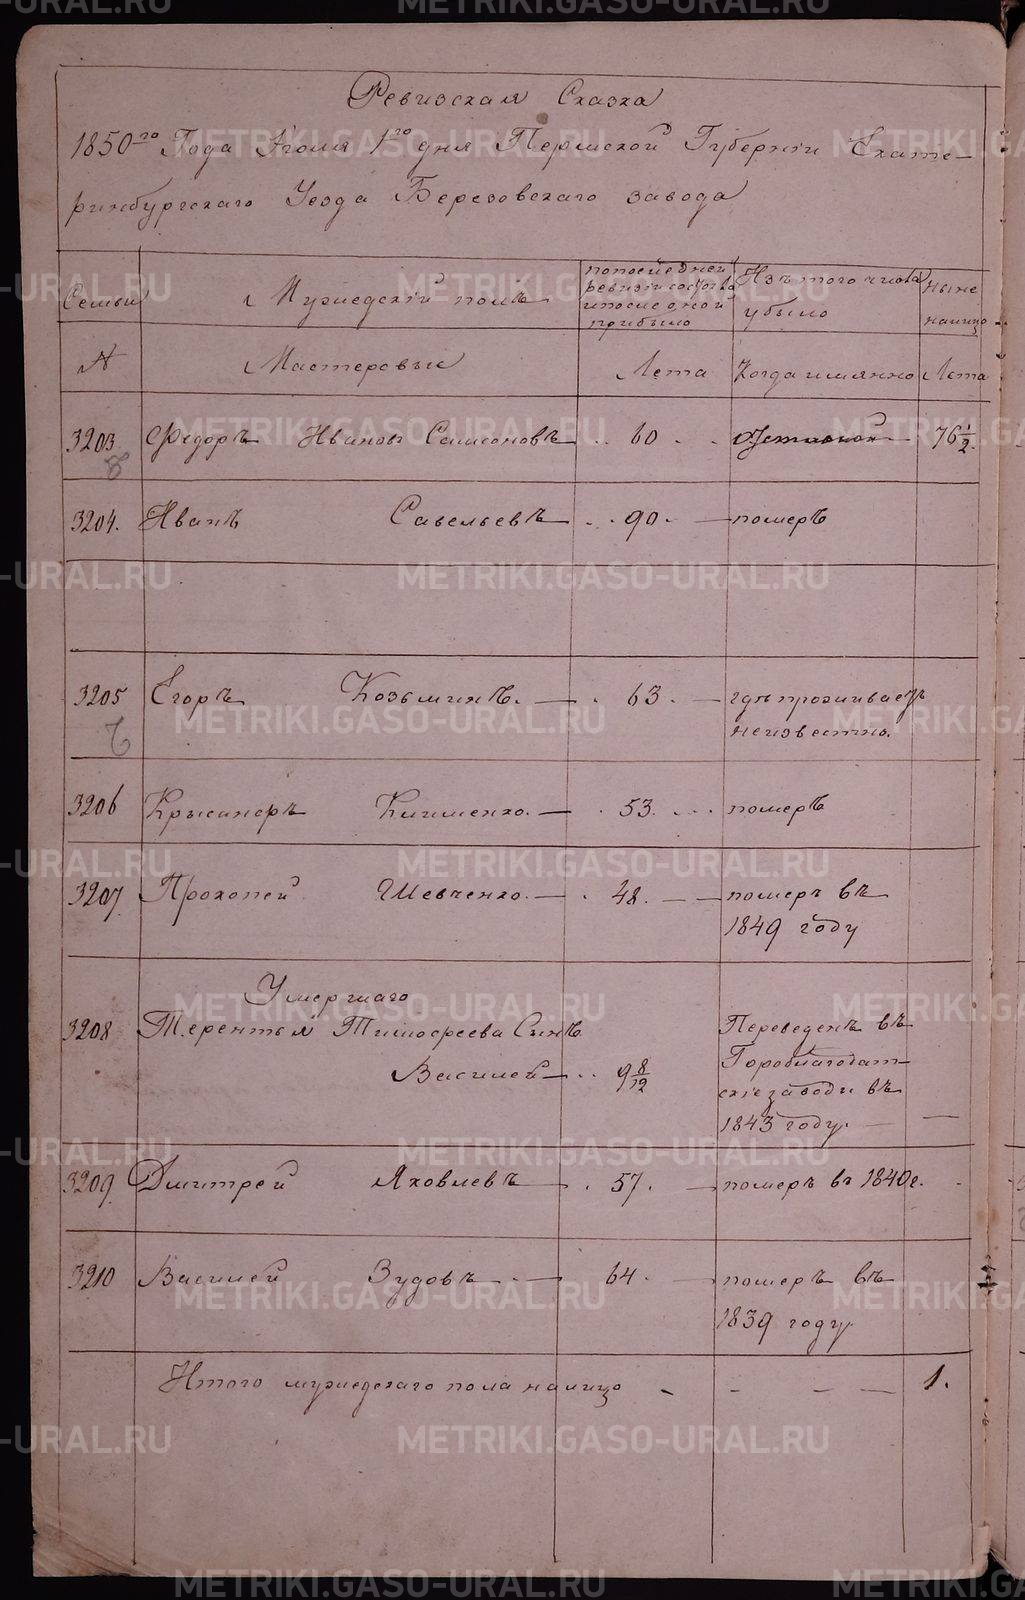 Ревизская Сказка
1850го Года Іюля 1го дня Пермской Губерніи Екате-
ринбургскаго Уезда Березовскаго завода
Семьи
Мужескій полъ
попоследней
ревизіи состояло
ипоследной
прибыло
Изътого числа
убыло
Ныне
налицо
№
Мастеровыи
Лета
Когда имянно
Лета
3203. Федоръ Ивановъ Самсоновъ 60 76 1/2.
3204. Иванъ Савельевъ 90. померъ
3205 Егоръ Козьминъ. 63. гдѣ проживаетъ
неизвестно.
3206 Крысанфъ Клименко. 53. померъ
3207 Прокопей Шевченко. 48. померъ въ
1849 году
Умершаго
3208 Терентья Тимофеева Сынъ
Василей 9 8/12
Переведенъ въ
Гороблагодат-
скіе заводы въ
1843 году.
3209. Дмитрей Яковлевъ 57. померъ въ 1840 г.
3210 Василей Зудовъ 64. померъ въ
1839 году
Итого мужескаго пола налицо 1.
METRIKI.GASO-URAL.RU